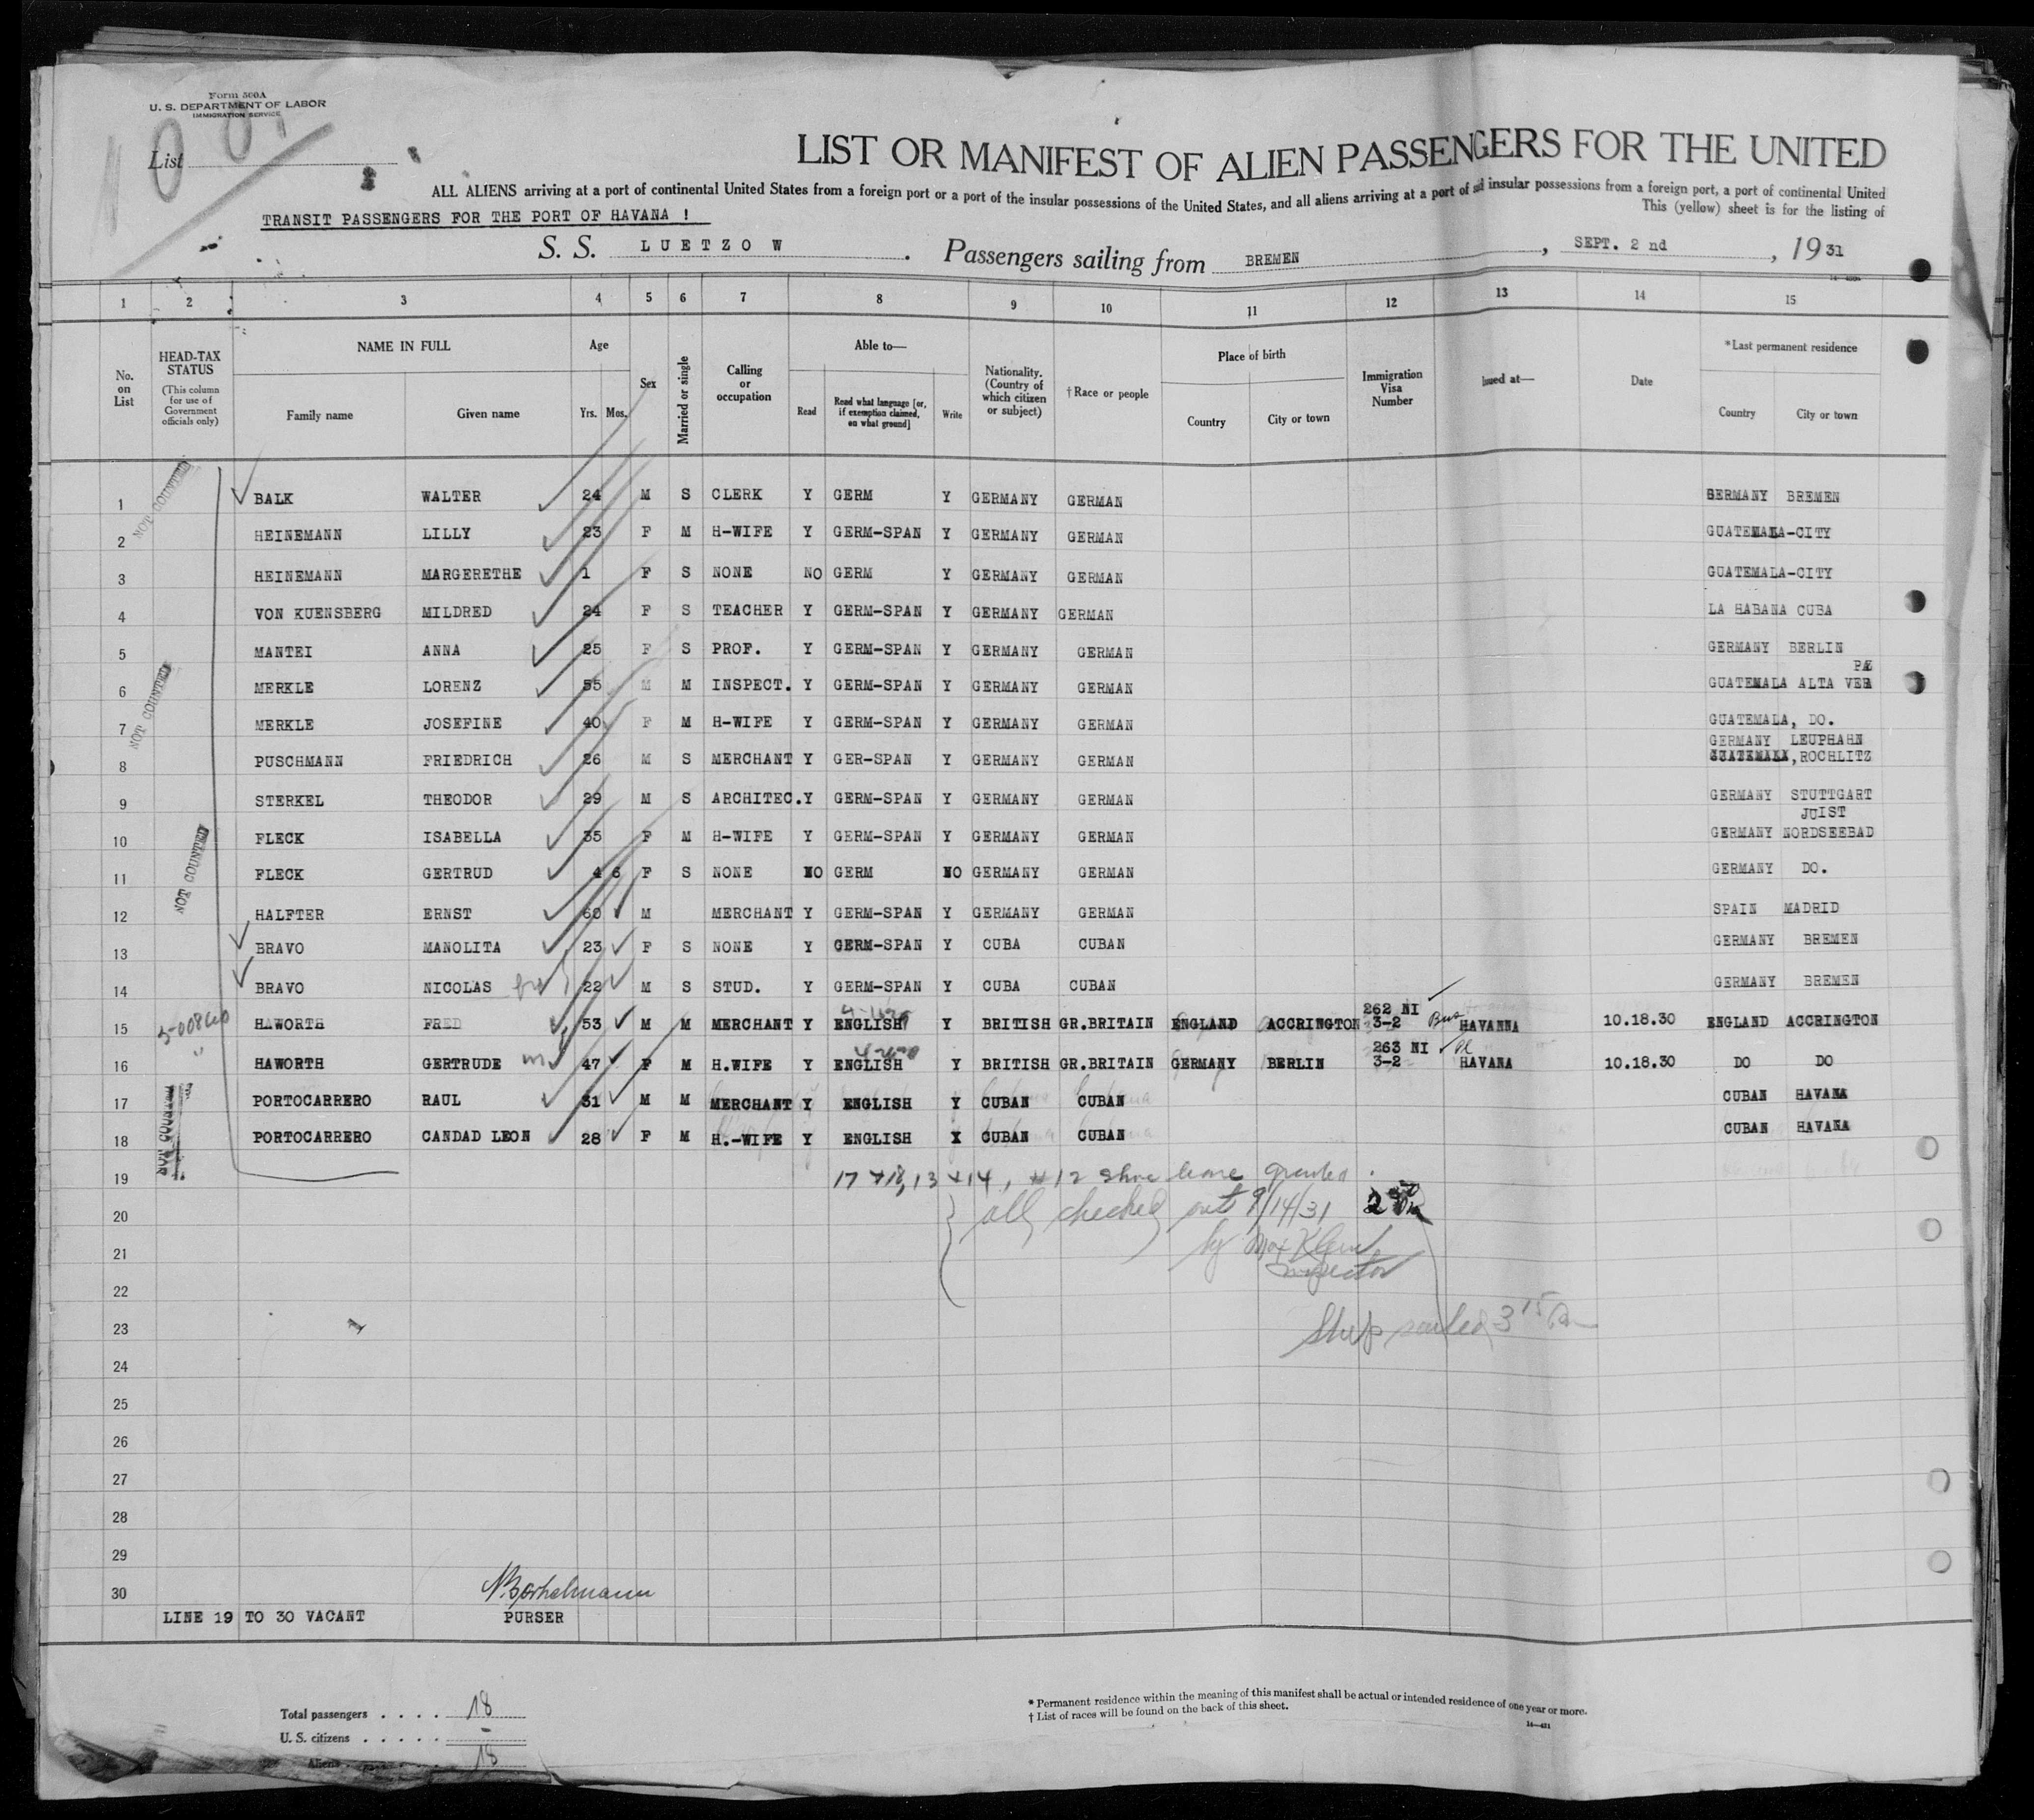 Form 500A
U. S. DEPARTMENT OF LABOR
IMMIGRATION SERVICE
List
LIST OR MANIFEST OF ALIEN PASSENGERS FOR THE UNITED
ALL ALIENS arriving at a port of continental United States from a foreign port or a port of the insular possessions of the United States, and all aliens arriving at a port of said insular possessions from a foreign port, a port of continental United
This (yellow) sheet is for the listing of
TRANSIT PASSENGERS FOR THE PORT OF HAVANA !
S. S. LUETZOW. Passengers sailing from BREMEN, SEPT. 2 nd, 1931
1 2 3 4 5 6 7 8 9 10 11 12 13 14 15
No. on List
HEAD-TAX STATUS (This column for use of Government officials only)
NAME IN FULL Family name Given name
Age Yrs. Mos.
Sex
Married or single
Calling or occupation
Able to— Read Read what language [or, if exemption claimed, on what ground] Write
Nationality. (Country of which citizen or subject)
†Race or people
Place of birth Country City or town
Immigration Visa Number
Issued at—
Date
*Last permanent residence Country City or town
1 BALK WALTER 24 M S CLERK Y GERM Y GERMANY GERMAN GERMANY BREMEN
2 HEINEMANN LILLY 23 F M H-WIFE Y GERM-SPAN Y GERMANY GERMAN GUATEMALA-CITY
3 HEINEMANN MARGERETHE 1 F S NONE NO GERM Y GERMANY GERMAN GUATEMALA-CITY
4 VON KUENSBERG MILDRED 24 F S TEACHER Y GERM-SPAN Y GERMANY GERMAN LA HABANA CUBA
5 MANTEI ANNA 25 F S PROF. Y GERM-SPAN Y GERMANY GERMAN GERMANY BERLIN
6 MERKLE LORENZ 55 M M INSPECT. Y GERM-SPAN Y GERMANY GERMAN GUATEMALA ALTA VER
7 MERKLE JOSEFINE 40 F M H-WIFE Y GERM-SPAN Y GERMANY GERMAN GUATEMALA, DO.
GERMANY LEUPHAHN
8 PUSCHMANN FRIEDRICH 26 M S MERCHANT Y GER-SPAN Y GERMANY GERMAN GUATEMALA, ROCHLITZ
9 STERKEL THEODOR 29 M S ARCHITEC. Y GERM-SPAN Y GERMANY GERMAN GERMANY STUTTGART
JUIST
10 FLECK ISABELLA 35 F M H-WIFE Y GERM-SPAN Y GERMANY GERMAN GERMANY NORDSEEBAD
11 FLECK GERTRUD 4 6 F S NONE NO GERM NO GERMANY GERMAN GERMANY DO.
12 HALFTER ERNST 60 M MERCHANT Y GERM-SPAN Y GERMANY GERMAN SPAIN MADRID
13 BRAVO MANOLITA 23 F S NONE Y GERM-SPAN Y CUBA CUBAN GERMANY BREMEN
14 BRAVO NICOLAS 22 M S STUD. Y GERM-SPAN Y CUBA CUBAN GERMANY BREMEN
262 NI
15 HAWORTH FRED 53 M M MERCHANT Y ENGLISH Y BRITISH GR.BRITAIN ENGLAND ACCRINGTON 3-2 HAVANNA 10.18.30 ENGLAND ACCRINGTON
263 NI
16 HAWORTH GERTRUDE 47 F M H.WIFE Y ENGLISH Y BRITISH GR.BRITAIN GERMANY BERLIN 3-2 HAVANA 10.18.30 DO DO
17 PORTOCARRERO RAUL 31 M M MERCHANT Y ENGLISH Y CUBAN CUBAN CUBAN HAVANA
18 PORTOCARRERO CANDAD LEON 28 F M H.-WIFE Y ENGLISH X CUBAN CUBAN CUBAN HAVANA
NOT COUNTED
NOT COUNTED
NOT COUNTED
NOT COUNTED
19 17 + 18, 13 + 14, #12 Shore leave granted.
20 all checked out 9/14/31
21 by Max Klein
Inspector
22
23 Ship sailed 3 15
24
25
26
27
28
29
30
LINE 19 TO 30 VACANT
PURSER
Total passengers . . . . 18
U. S. citizens . . . . . -
Aliens . . . . 18
* Permanent residence within the meaning of this manifest shall be actual or intended residence of one year or more.
† List of races will be found on the back of this sheet.
14—421